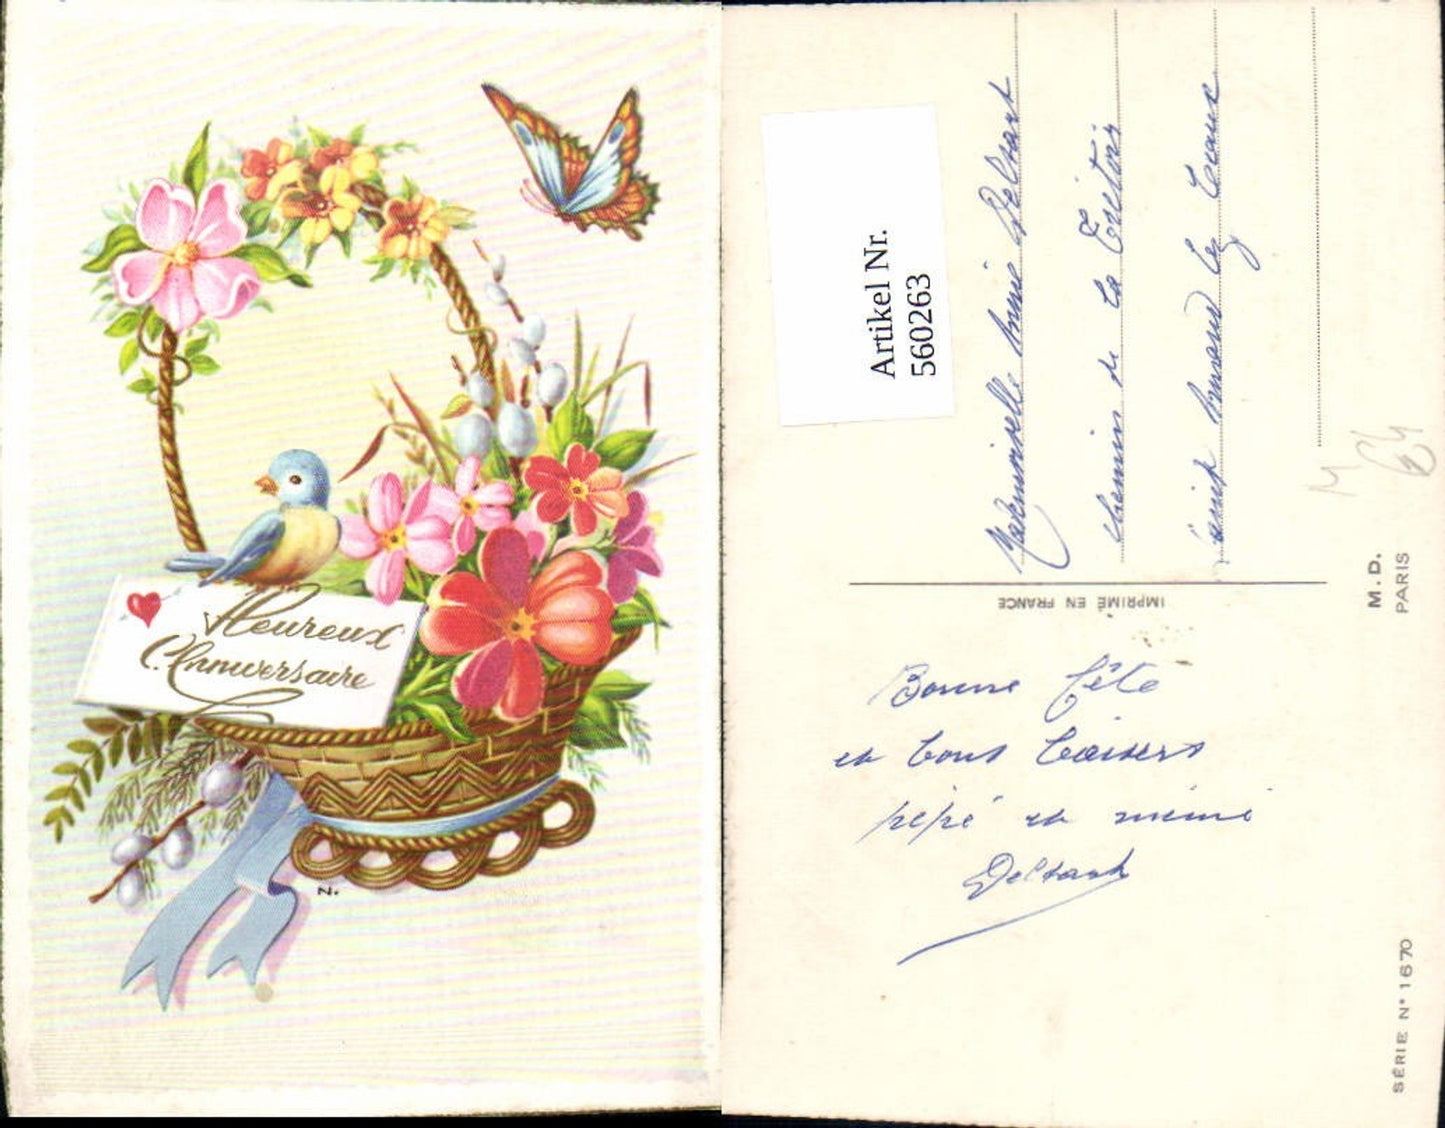 Heureux
Anniversaire
N.
Artikel Nr.
560263
Mademoiselle Annie Deltant
chemin de la
Saint Amand les Eaux
IMPRIMÉ EN FRANCE
M. D.
PARIS
Bonne fête
et bons baisers
pépé et mémé
SÉRIE N° 1670